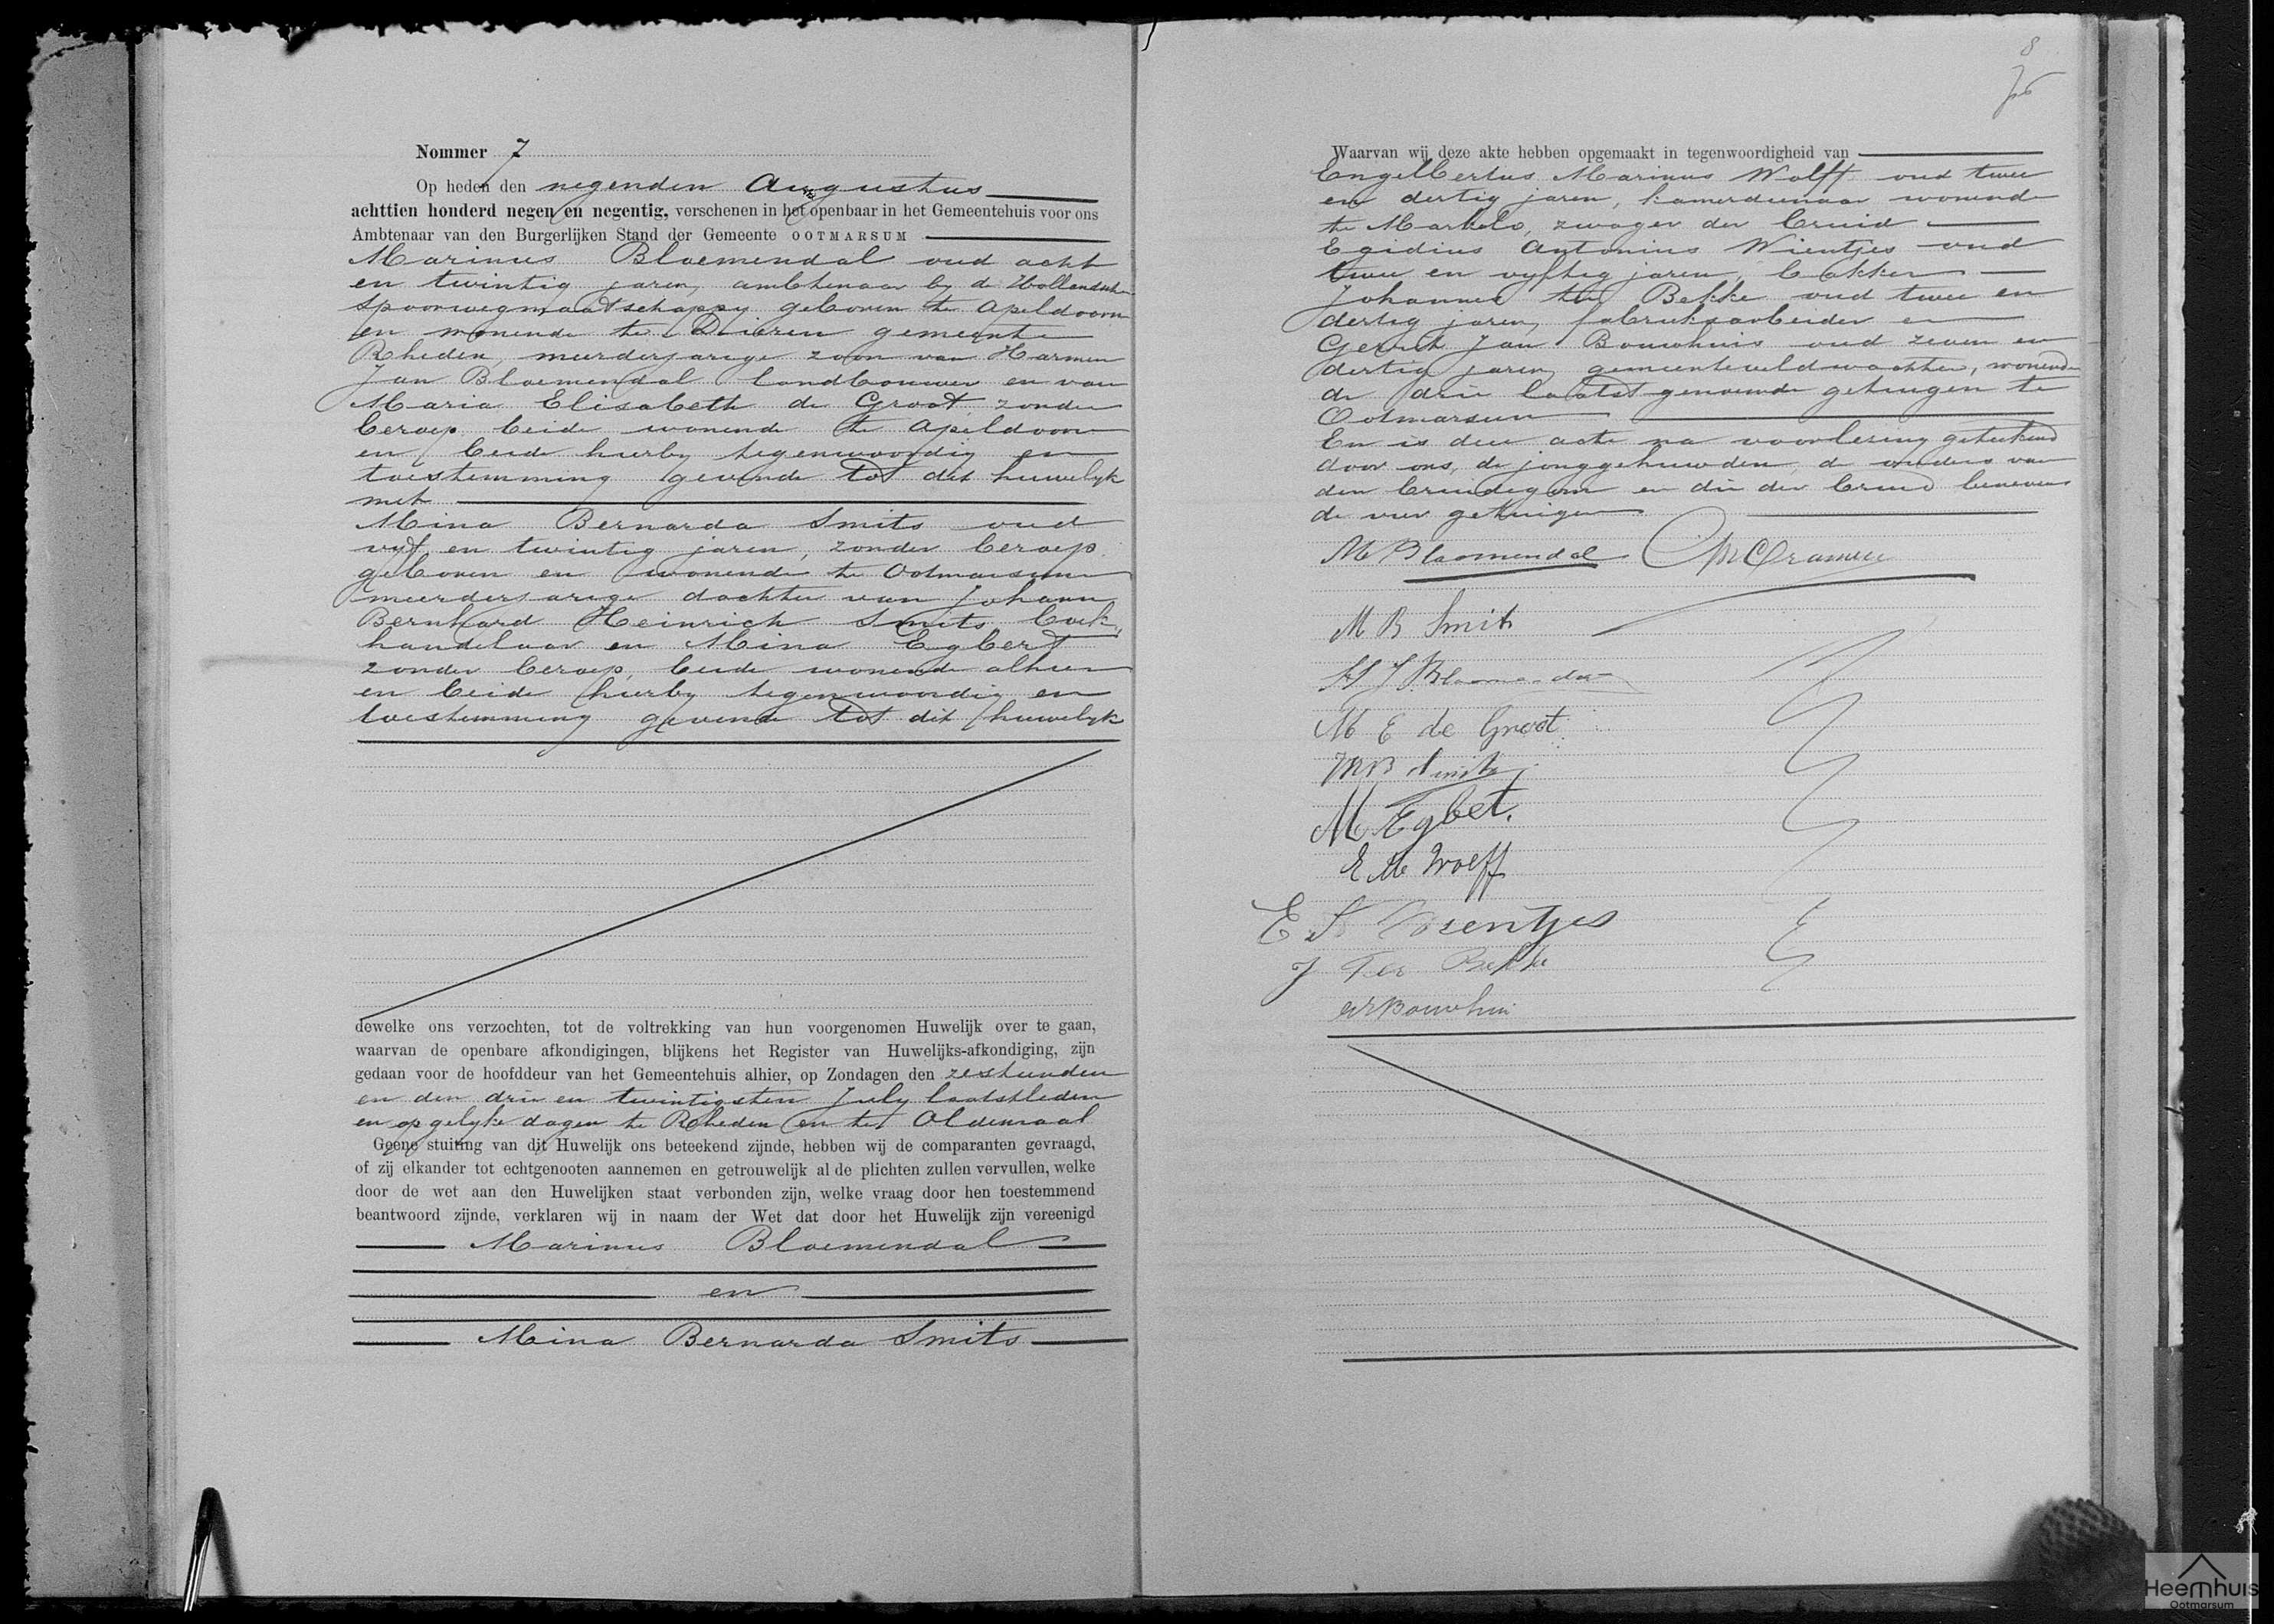 Nommer 7
Op heden den negenden Augustus
achttien honderd negen en negentig, verschenen in het openbaar in het Gemeentehuis voor ons
Ambtenaar van den Burgerlijken Stand der Gemeente OOTMARSUM
Marinus Bloemendal oud acht
en twintig jaren, ambtenaar by de Hollandsche
spoorwegmaatschappy geboren te Apeldoorn
en wonende te Dieren gemeente
Rheden, meerderjarige zoon van Harmen
Jan Bloemendal landbouwer en van
Maria Elisabeth de Groot, zonder
beroep, beide wonende te Apeldoorn
en beide hierby tegenwoordig en
toestemming gevende tot dit huwelyk
met
Mina Bernarda Smits oud
vyf en twintig jaren, zonder beroep
geboren en wonende te Ootmarsum
meerderjarige dochter van Johann
Bernhard Heinrich Smits, boek
handelaar en Mina Egbert
zonder beroep, beide wonende alhier
en beide hierby tegenwoordig en
toestemming gevende tot dit huwelyk
dewelke ons verzochten, tot de voltrekking van hun voorgenomen Huwelijk over te gaan,
waarvan de openbare afkondigingen, blijkens het Register van Huwelijks-afkondiging, zijn
gedaan voor de hoofddeur van het Gemeentehuis alhier, op Zondagen den zestienden
en den drie en twintigsten July laatstleden
en op gelyke dagen te Rheden en te Oldenzaal
Geene stuiting van dit Huwelijk ons beteekend zijnde, hebben wij de comparanten gevraagd,
of zij elkander tot echtgenooten aannemen en getrouwelijk al de plichten zullen vervullen, welke
door de wet aan den Huwelijken staat verbonden zijn, welke vraag door hen toestemmend
beantwoord zijnde, verklaren wij in naam der Wet dat door het Huwelijk zijn vereenigd
Marinus Bloemendal
en
Mina Bernarda Smits
8
Waarvan wij deze akte hebben opgemaakt in tegenwoordigheid van
Engelbertus Marinus Wolff oud twee
en dertig jaren, kamerdienaar wonende
te Markelo, zwager der bruid
Egidius Antonius Wientjes oud
twee en vyftig jaren, bakker
Johannes ter Bekke oud twee en
dertig jaren, fabrieksarbeider en
Gerrit Jan Bouwhuis oud zeven en
dertig jaren gemeenteveldwachter, wonende
de drie laatstgenoemde getuigen te
Ootmarsum
En is deze acte na voorlezing geteekend
door ons, de jonggehuwden, de ouders van
den bruidegom en die der bruid benevens
de vier getuigen
M Bloemendal
M B Smits
H J Bloemendal
M E de Groot
Smits
M Egbet.
E M Wolff
E A Wientjes
J Ter Bekke
Bouwhuis
Heemhuis
Ootmarsum